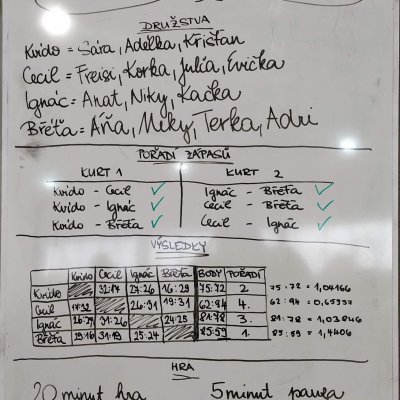 DRUŽSTVA
Kvído = Sára, Adélka, Krištan
Cecil = Freisi, Korka, Julía, Evička
Ignác = Anat, Niky, Kačka
Břéťa = Áňa, Miky, Terka, Adri
POŘADÍ ZÁPASŮ
KURT 1 KURT 2
Kvído - Cecil ✓ Ignác - Břéťa ✓
Kvído - Ignác ✓ Cecil - Břéťa ✓
Kvído - Břéťa ✓ Cecil - Ignác ✓
VÝSLEDKY
Kvído Cecil Ignác Břéťa BODY POŘADÍ
Kvído 32:17 27:26 16:29 75:72 2. 75:72 = 1,04166
Cecil 17:32 26:31 19:31 62:94 4. 62:94 = 0,65957
Ignác 26:27 31:26 24:25 81:78 3. 81:78 = 1,03846
Břéťa 29:16 31:19 25:24 85:59 1. 85:59 = 1,4406
HRA
20 minut hra 5 minut pauza